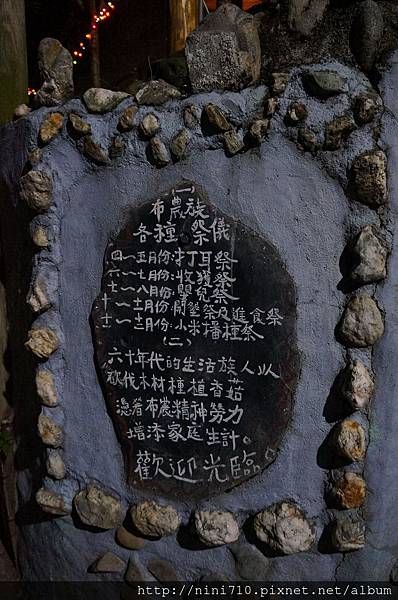 (一)
布農族
各種祭儀
四~五月份:打耳祭
六~七月份:收獲祭
七~八月份:嬰兒祭
十~十一月份:開墾祭及進食祭
十一~十二月份:小米播種祭
(二)
六十年代的生活族人以
砍伐木材種植香菇
憑著布農精神勞力
增添家庭生計。
歡迎光臨
http://nini710.pixnet.net/album